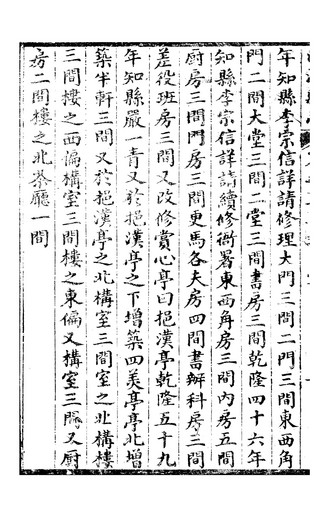 年知縣李宗信詳請修理大門三間二門三間東西角
門二間大堂三間二堂三間書房三間乾隆四十六年
知縣李宗信詳請續修衙署東西角房三間內房五間
廚房三間門房三間更馬各夫房四間書辦科房三間
差役班房三間又改修賞心亭曰挹漢亭乾隆五十九
年知縣嚴一青又於挹漢亭之下增築四美亭亭北增
築半軒三間又於挹漢亭之北構室三間室之北構樓
三間樓之西偏構室三間樓之東偏又構室三間又廚
房二間樓之北茶廳一間